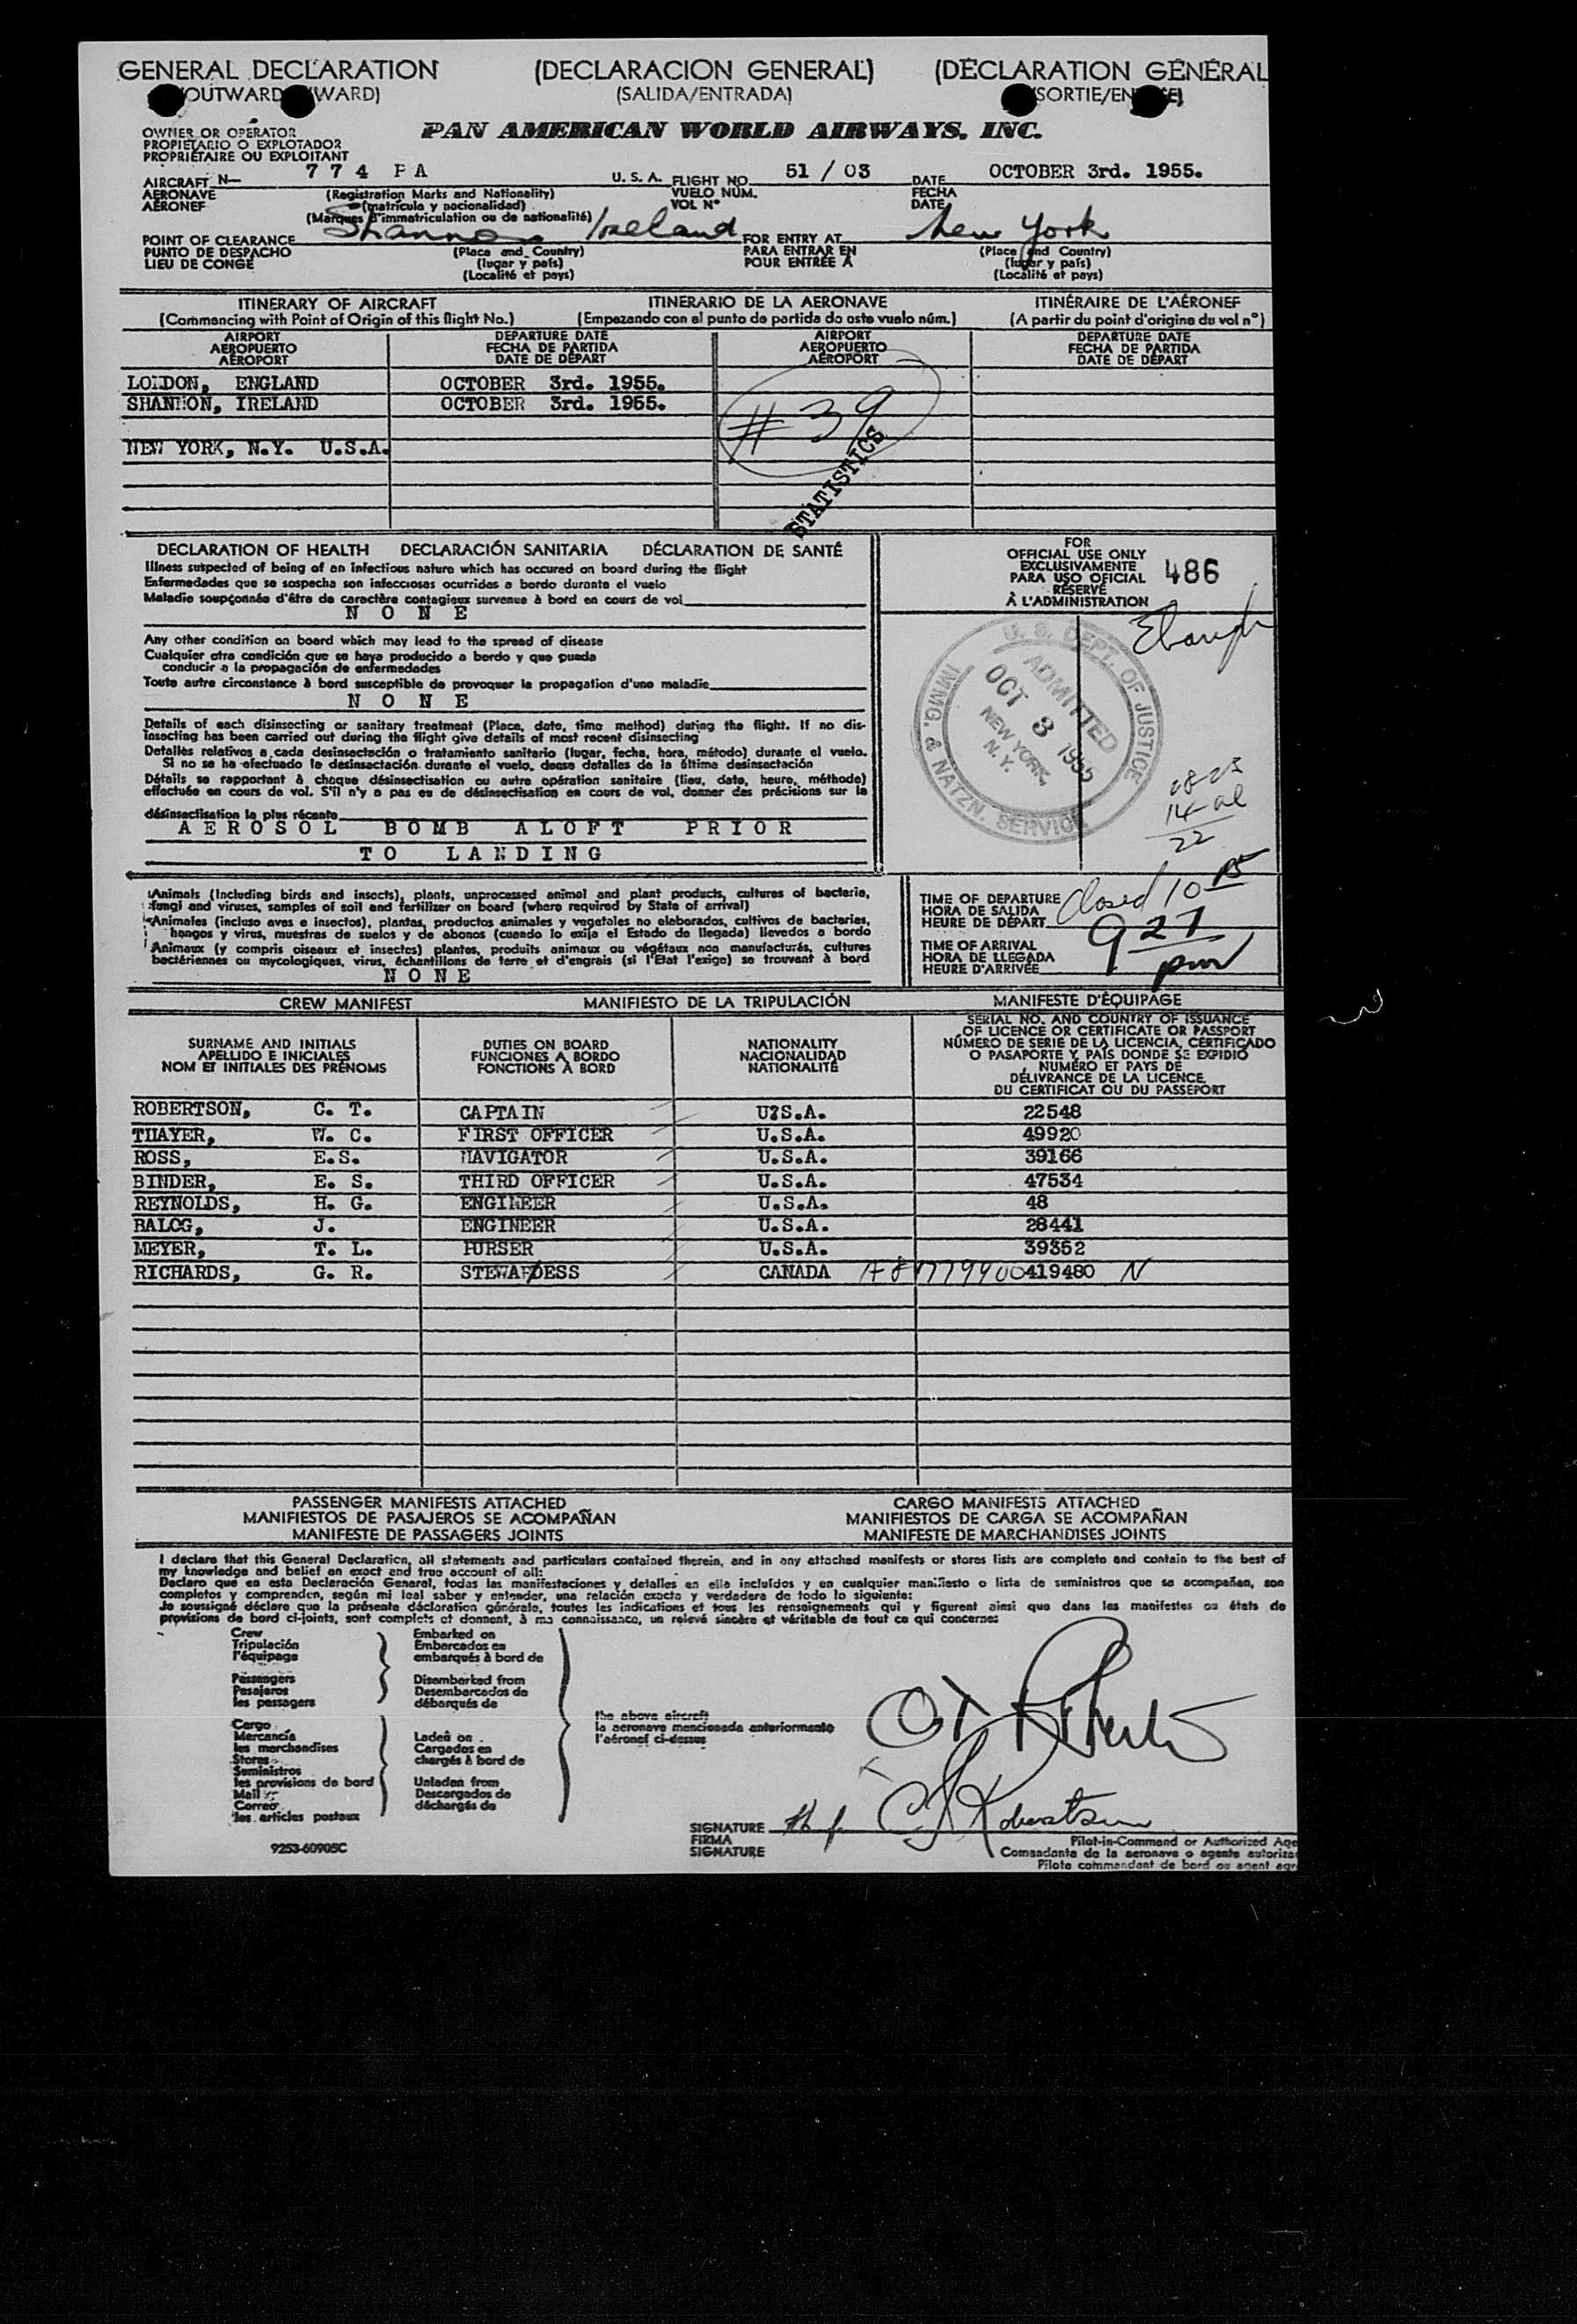 GENERAL DECLARATION (DECLARACION GENERAL) (DÉCLARATION GÉNÉRAL
(OUTWARD WARD) (SALIDA/ENTRADA) SORTIE/EN
OWNER OR OPERATOR
PROPIETARIO O EXPLOTADOR
PROPRIÉTAIRE OU EXPLOITANT
PAN AMERICAN WORLD AIRWAYS, INC.
AIRCRAFT N— 7 7 4 P A U. S. A. FLIGHT NO. 51 / 03 DATE OCTOBER 3rd. 1955.
AERONAVE (Registration Marks and Nationality) VUELO NÚM. FECHA
AÉRONEF (matrícula y nacionalidad) VOL Nº DATE
(Marques d'immatriculation ou de nationalité)
POINT OF CLEARANCE Shannon Ireland FOR ENTRY AT New York
PUNTO DE DESPACHO (Place and Country) PARA ENTRAR EN (Place and Country)
LIEU DE CONGÉ (lugar y país) POUR ENTRÉE À (lugar y país)
(Localité et pays) (Localité et pays)
ITINERARY OF AIRCRAFT ITINERARIO DE LA AERONAVE ITINÉRAIRE DE L'AÉRONEF
(Commencing with Point of Origin of this flight No.) (Empezando con el punto de partida de este vuelo núm.) (A partir du point d'origine du vol nº)
AIRPORT DEPARTURE DATE AIRPORT DEPARTURE DATE
AEROPUERTO FECHA DE PARTIDA AEROPUERTO FECHA DE PARTIDA
AÉROPORT DATE DE DÉPART AÉROPORT DATE DE DÉPART
LONDON, ENGLAND OCTOBER 3rd. 1955.
SHANNON, IRELAND OCTOBER 3rd. 1955.
# 39
NEW YORK, N.Y. U.S.A.
STATISTICS
DECLARATION OF HEALTH DECLARACIÓN SANITARIA DÉCLARATION DE SANTÉ
Illness suspected of being of an infectious nature which has occured on board during the flight
Enfermedades que se sospecha son infecciosas ocurridas a bordo durante el vuelo
Maladie soupçonnée d'être de caractère contagieux survenue à bord en cours de vol
N O N E
Any other condition on board which may lead to the spread of disease
Cualquier otra condición que se haya producido a bordo y que pueda
conducir a la propagación de enfermedades
Toute autre circonstance à bord susceptible de provoquer la propagation d'une maladie
N O N E
Details of each disinsecting or sanitary treatment (Place, date, time method) during the flight. If no dis-
insecting has been carried out during the flight give details of most recent disinsecting
Detalles relativos a cada desinsectación o tratamiento sanitario (lugar, fecha, hora, método) durante el vuelo.
Si no se ha efectuado la desinsectación durante el vuelo, dense detalles de la última desinsectación
Détails se rapportant à chaque désinsectisation ou autre opération sanitaire (lieu, date, heure, méthode)
effectuée en cours de vol. S'il n'y a pas eu de désinsectisation en cours de vol, donner des précisions sur la
désinsectisation la plus récente
A E R O S O L B O M B A L O F T P R I O R
T O L A N D I N G
FOR
OFFICIAL USE ONLY
EXCLUSIVAMENTE
PARA USO OFICIAL
RÉSERVÉ
À L'ADMINISTRATION
486
U. S. DEPT. OF JUSTICE
IMMG. & NATZN. SERVICE
ADMITTED
OCT 3 1955
NEW YORK,
N. Y.
22
Animals (Including birds and insects), plants, unprocessed animal and plant products, cultures of bacteria,
fungi and viruses, samples of soil and fertilizer on board (where required by State of arrival)
Animales (incluso aves e insectos), plantas, productos animales y vegetales no elaborados, cultivos de bacterias,
hongos y virus, muestras de suelos y de abonos (cuando lo exija el Estado de llegada) llevados a bordo
Animaux (y compris oiseaux et insectes) plantes, produits animaux ou végétaux non manufacturés, cultures
bactériennes ou mycologiques, virus, échantillons de terre et d'engrais (si l'Etat l'exige) se trouvant à bord
N O N E
TIME OF DEPARTURE Closed 10
HORA DE SALIDA
HEURE DE DÉPART
TIME OF ARRIVAL 9 27
HORA DE LLEGADA pm
HEURE D'ARRIVÉE
CREW MANIFEST MANIFIESTO DE LA TRIPULACIÓN MANIFESTE D'ÉQUIPAGE
SURNAME AND INITIALS
APELLIDO E INICIALES
NOM ET INITIALES DES PRÉNOMS
DUTIES ON BOARD
FUNCIONES A BORDO
FONCTIONS À BORD
NATIONALITY
NACIONALIDAD
NATIONALITÉ
SERIAL NO. AND COUNTRY OF ISSUANCE
OF LICENCE OR CERTIFICATE OR PASSPORT
NÚMERO DE SERIE DE LA LICENCIA, CERTIFICADO
O PASAPORTE Y PAÍS DONDE SE EXPIDIÓ
NUMÉRO ET PAYS DE
DÉLIVRANCE DE LA LICENCE
DU CERTIFICAT OU DU PASSEPORT
ROBERTSON, C. T. CAPTAIN U?S.A. 22548
THAYER, W. C. FIRST OFFICER U.S.A. 49920
ROSS, E.S. NAVIGATOR U.S.A. 39166
BINDER, E. S. THIRD OFFICER U.S.A. 47534
REYNOLDS, H. G. ENGINEER U.S.A. 48
BALOG, J. ENGINEER U.S.A. 28441
MEYER, T. L. PURSER U.S.A. 39352
RICHARDS, G. R. STEWARDESS CANADA 419480 N
PASSENGER MANIFESTS ATTACHED CARGO MANIFESTS ATTACHED
MANIFIESTOS DE PASAJEROS SE ACOMPAÑAN MANIFIESTOS DE CARGA SE ACOMPAÑAN
MANIFESTE DE PASSAGERS JOINTS MANIFESTE DE MARCHANDISES JOINTS
I declare that this General Declaration, all statements and particulars contained therein, and in any attached manifests or stores lists are complete and contain to the best of
my knowledge and belief an exact and true account of all:
Declaro que en esta Declaración General, todas las manifestaciones y detalles en ella incluídos y en cualquier manifiesto o lista de suministros que se acompañan, son
completos y comprenden, según mi leal saber y entender, una relación exacta y verdadera de todo lo siguiente:
Je soussigné déclare que la présente déclaration générale, toutes les indications et tous les renseignements qui y figurent ainsi que dans les manifestes ou états de
provisions de bord ci-joints, sont complets et donnent, à ma connaissance, un relevé sincère et véritable de tout ce qui concerne:
Crew Embarked on
Tripulación Embarcados en
l'équipage embarqués à bord de
Passengers Disembarked from
Pasajeros Desembarcados de
les passagers débarqués de
the above aircraft
la aeronave mencionada anteriormente
l'aéronef ci-dessus
Cargo
Mercancía Laden on
les marchandises Cargados en
Stores chargés à bord de
Suministros
les provisions de bord Unladen from
Mail Descargados de
Correo déchargés de
les articles postaux
SIGNATURE C T Robertson
FIRMA
SIGNATURE
Pilot-in-Command or Authorized Age
Comandante de la aeronave o agente autoriza
Pilote commandant de bord ou agent agr
9253-60905C